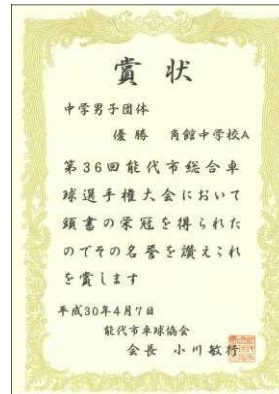 賞状
中学男子団体
優勝 角館中学校A
第36回能代市総合卓
球選手権大会において
頭書の栄冠を得られた
のでその名誉を讃えこれ
を賞します
平成30年4月7日
能代市卓球協会
会長 小川敏行